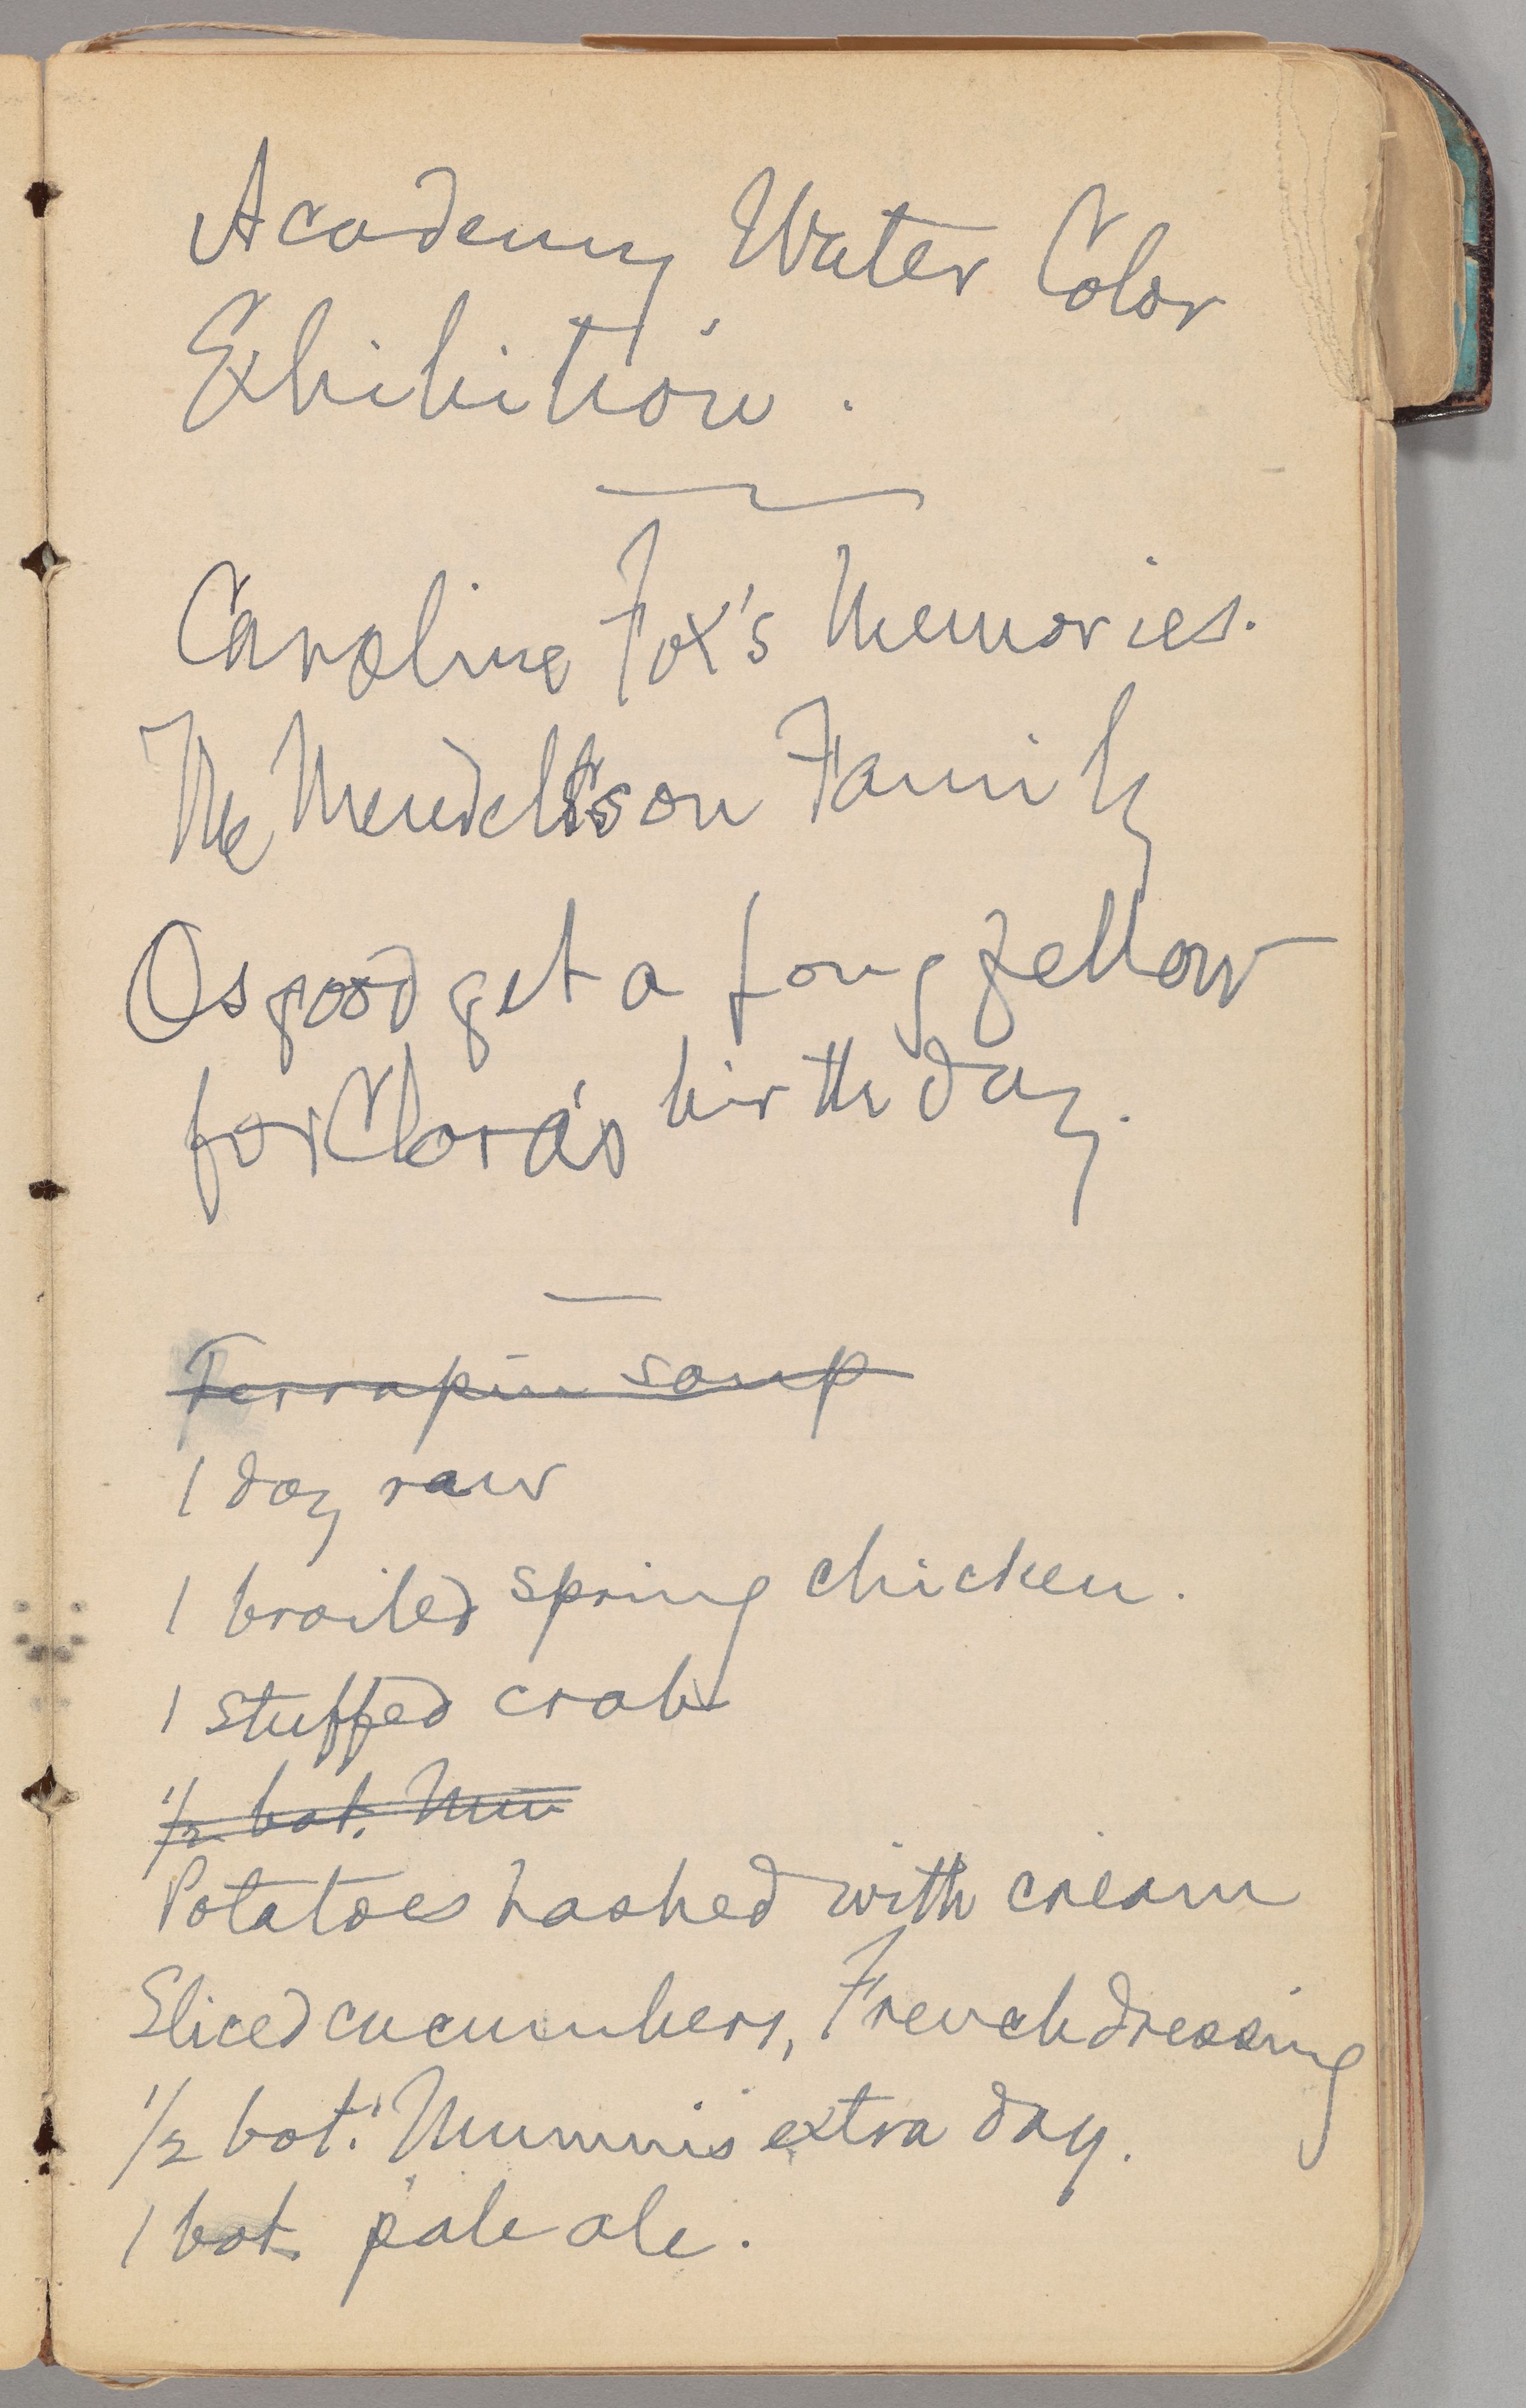 Academy Water Color
Exhibition.
Caroline Fox's Memories.
The Mendelsson Family
Osgood get a Longfellow
for Clara's birthday.
Terrapin soup
1 doz raw
1 broiled spring chicken.
1 stuffed crab
1/2 bot. Mum
Potatoes hashed with cream
Sliced cucumbers, French dressing
1/2 bot. Mumm's extra dry.
1 bot. pale ale.